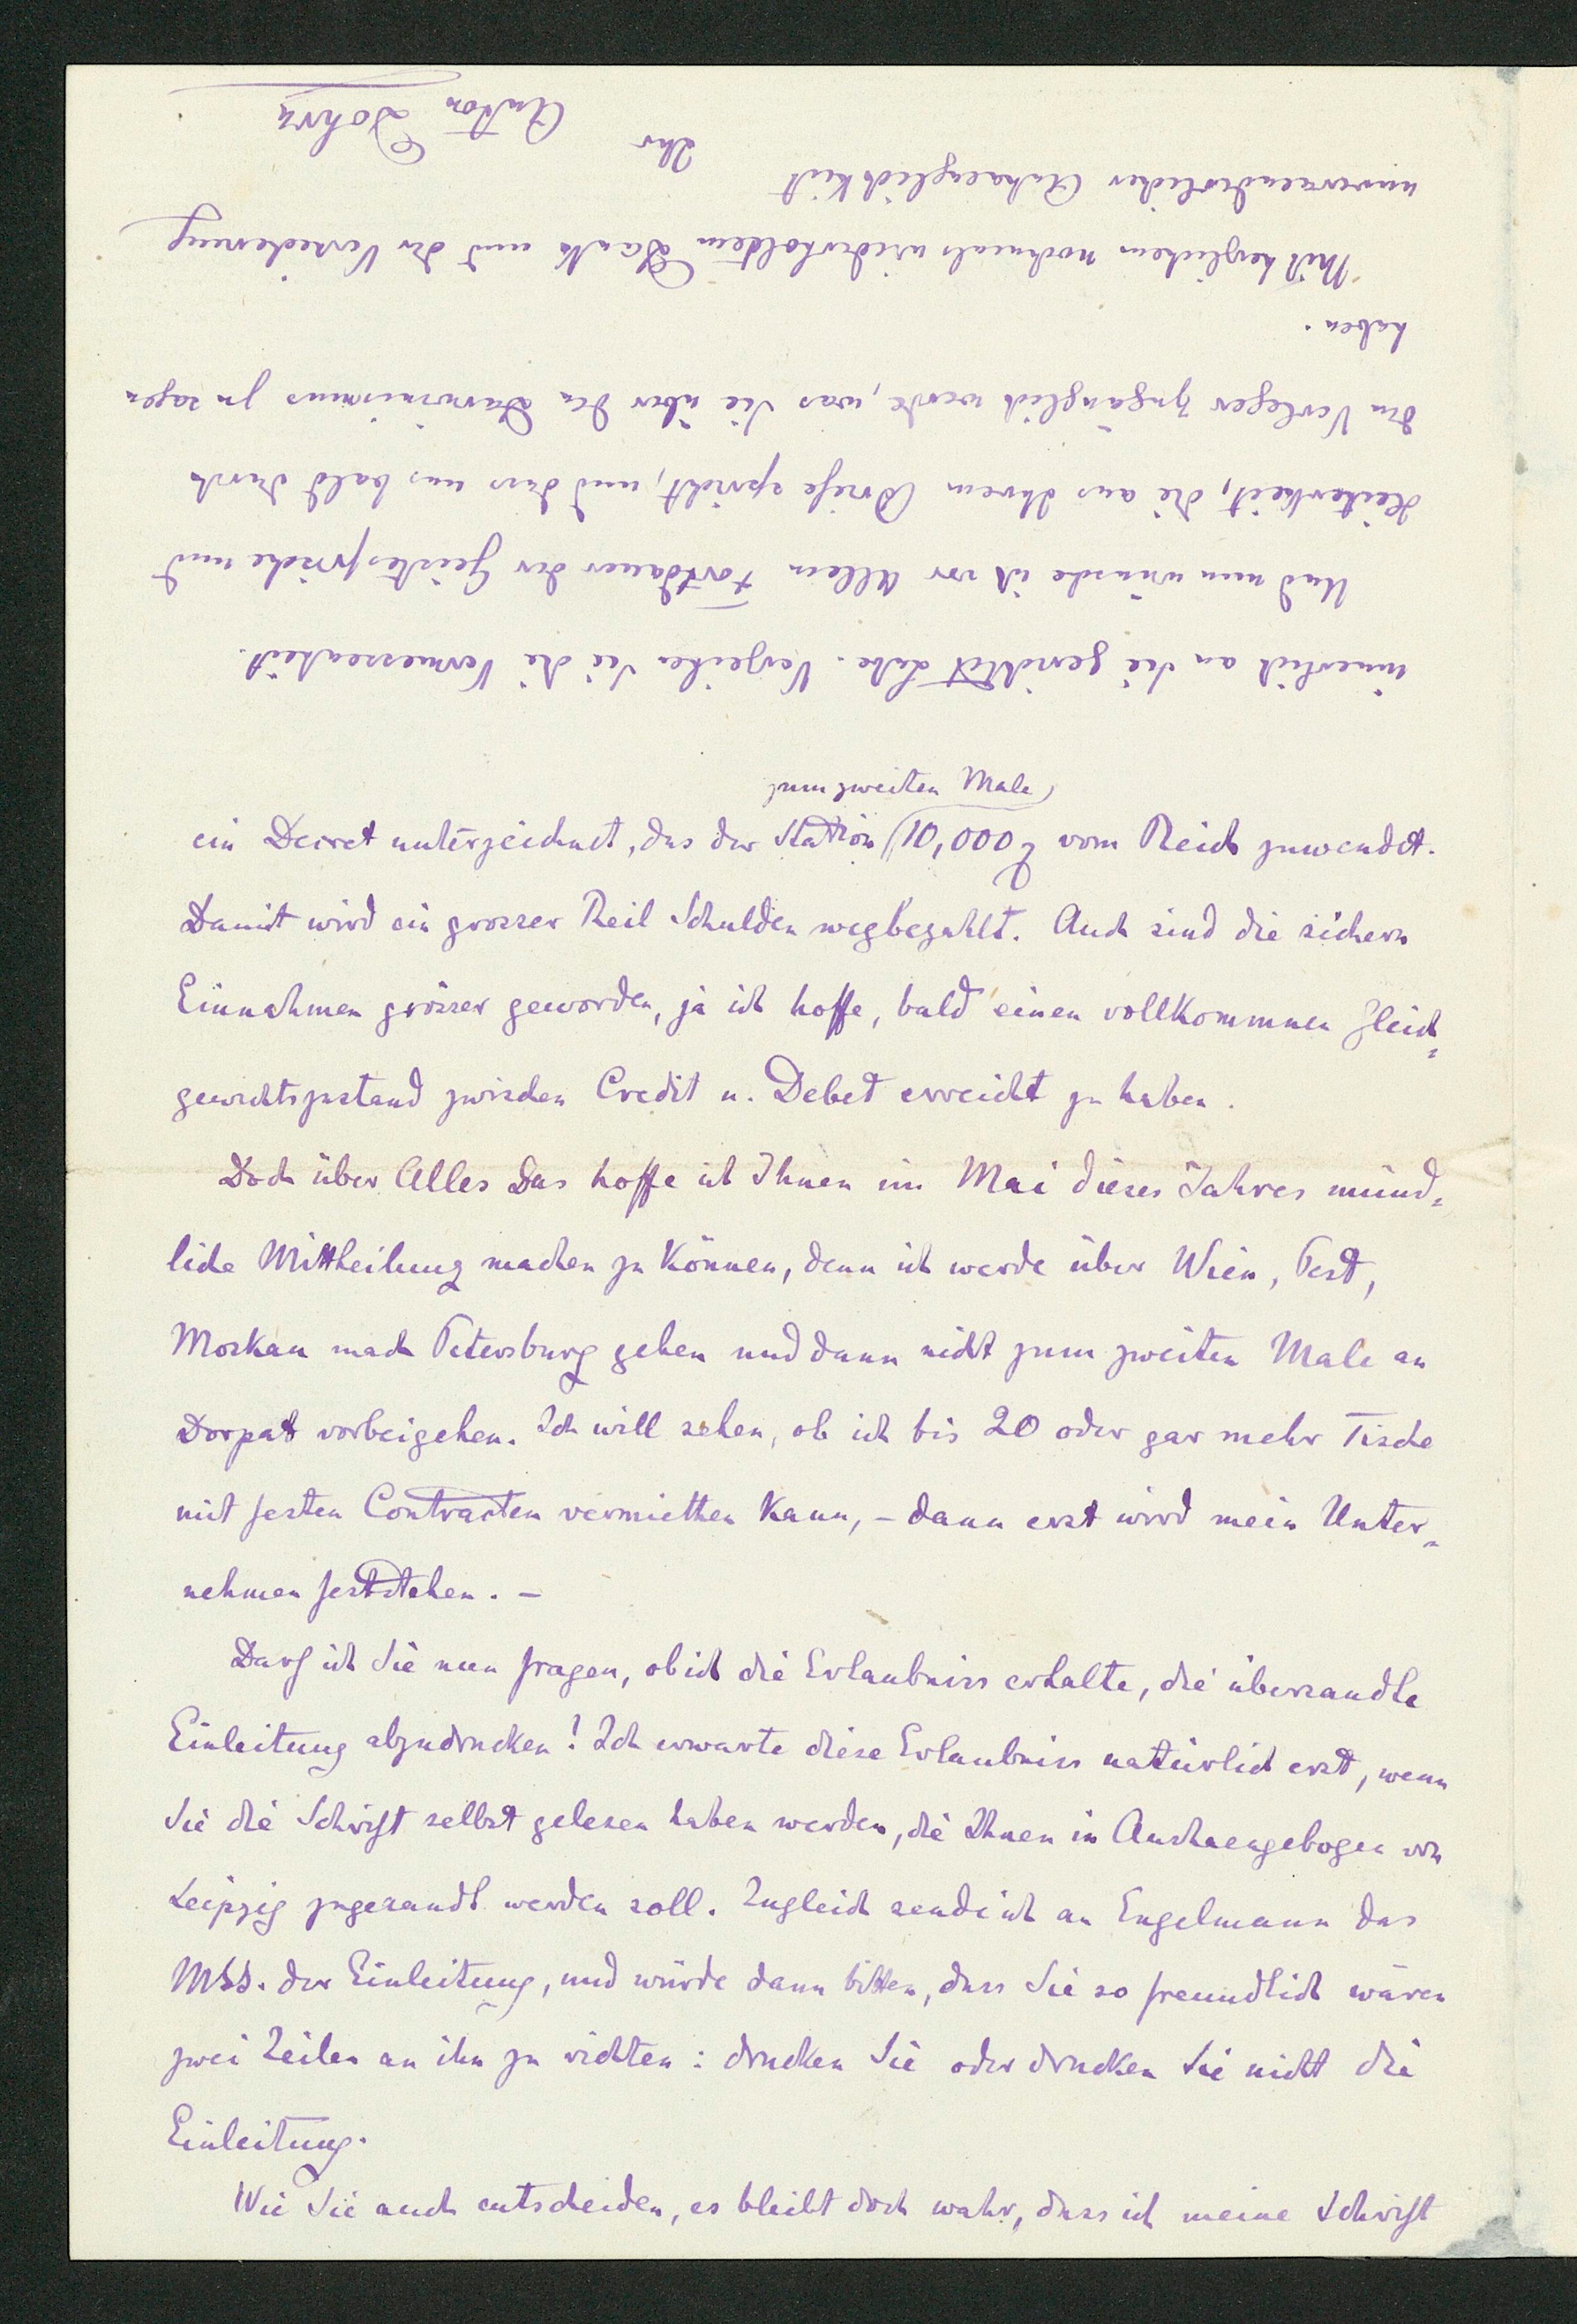 ein Decret unterzeichnet, das der Station zum zweiten Male 10,000 vom Reich zuwendet.
Damit wird ein grosser Theil Schulden wegbezahlt. Auch sind die sichern
Einnahmen grösser geworden, ja ich hoffe, bald einen vollkommnen Gleich-
gewichtszustand zwischen Credit u. Debet erreicht zu haben.
Doch über Alles Das hoffe ich Ihnen im Mai dieses Jahres münd-
liche Mittheilung machen zu können, denn ich werde über Wien, Pest,
Moskau nach Petersburg gehen und dann nicht zum zweiten Male an
Dorpat vorbeigehen. Ich will sehen, ob ich bis 20 oder gar mehr Tische
mit festen Contracten vermiethen kann, – dann erst wird mein Unter-
nehmen feststehen. –
Darf ich Sie nun fragen, ob ich die Erlaubniss erhalte, die übersandte
Einleitung abzudrucken! Ich erwarte diese Erlaubniss natürlich erst, wenn
Sie die Schrift selbst gelesen haben werden, die Ihnen in Aushaengebogen von
Leipzig zugesandt werden soll. Zugleich sende ich an Engelmann das
MSS. der Einleitung, und würde dann bitten, dass Sie so freundlich wären
zwei Zeilen an ihn zu richten: drucken Sie oder drucken Sie nicht die
Einleitung.
Wie Sie auch entscheiden, es bleibt doch wahr, dass ich meine Schrift
innerlich an Sie gerichtet habe. Verzeihen Sie die Vermessenheit.
Und nun wünsche ich vor Allem Fortdauer der Geistesfrische und
Heiterkeit, die aus Ihrem Briefe spricht, und dass uns bald durch
den Verleger zugänglich werde, was Sie über den Darwinismus zu sagen
haben.
Mit herzlichem nochmals wiederholtem Dank und der Versicherung
unveraenderlicher Anhaenglichkeit
Ihr
Anton Dohrn